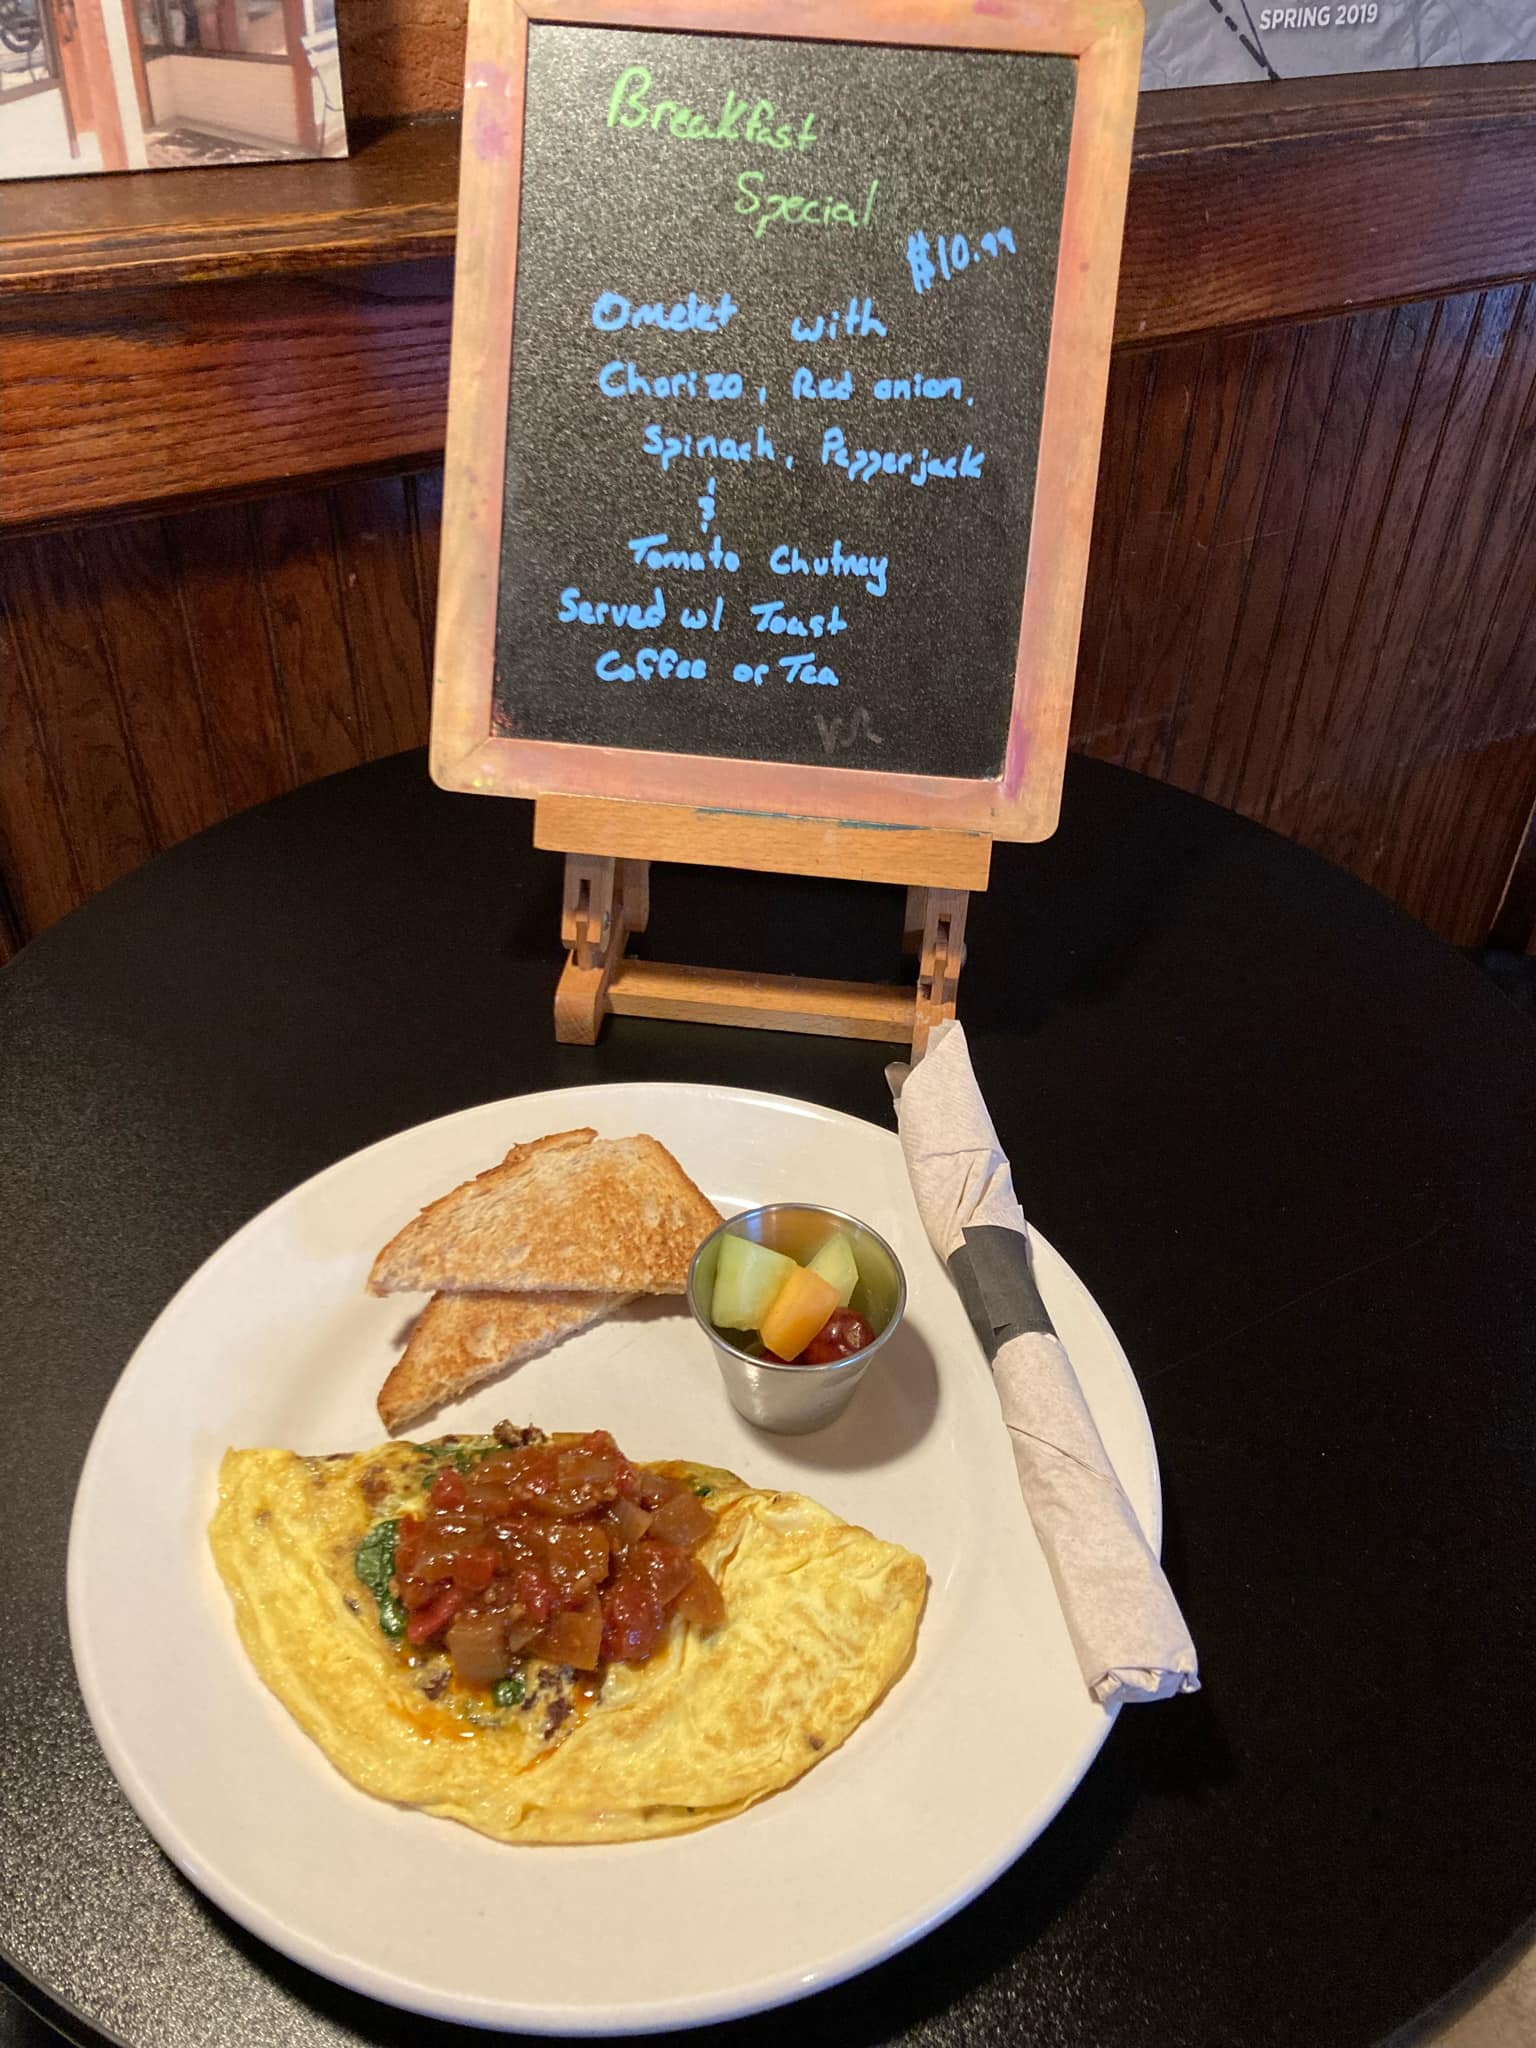 SPRING 2019
Breakfast
Special
$10.99
Omelet with
Chorizo, Red onion,
Spinach, Pepperjack
&
Tomato Chutney
Served w/ Toast
Coffee or Tea